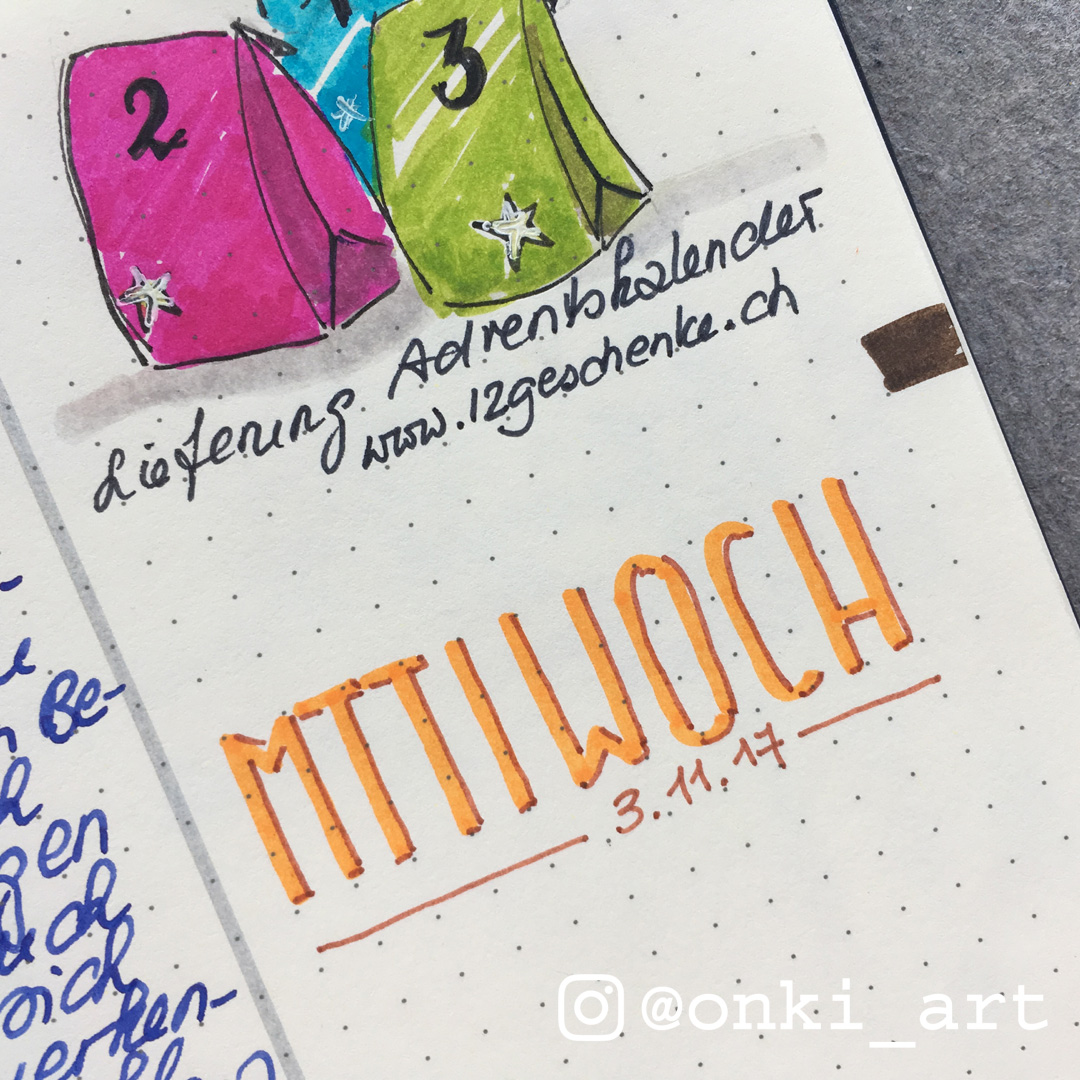 2
3
Lieferung Adventskalender
www.12geschenke.ch
MTTIWOCH
3.11.17
Be-
gen
sich
@onki_art